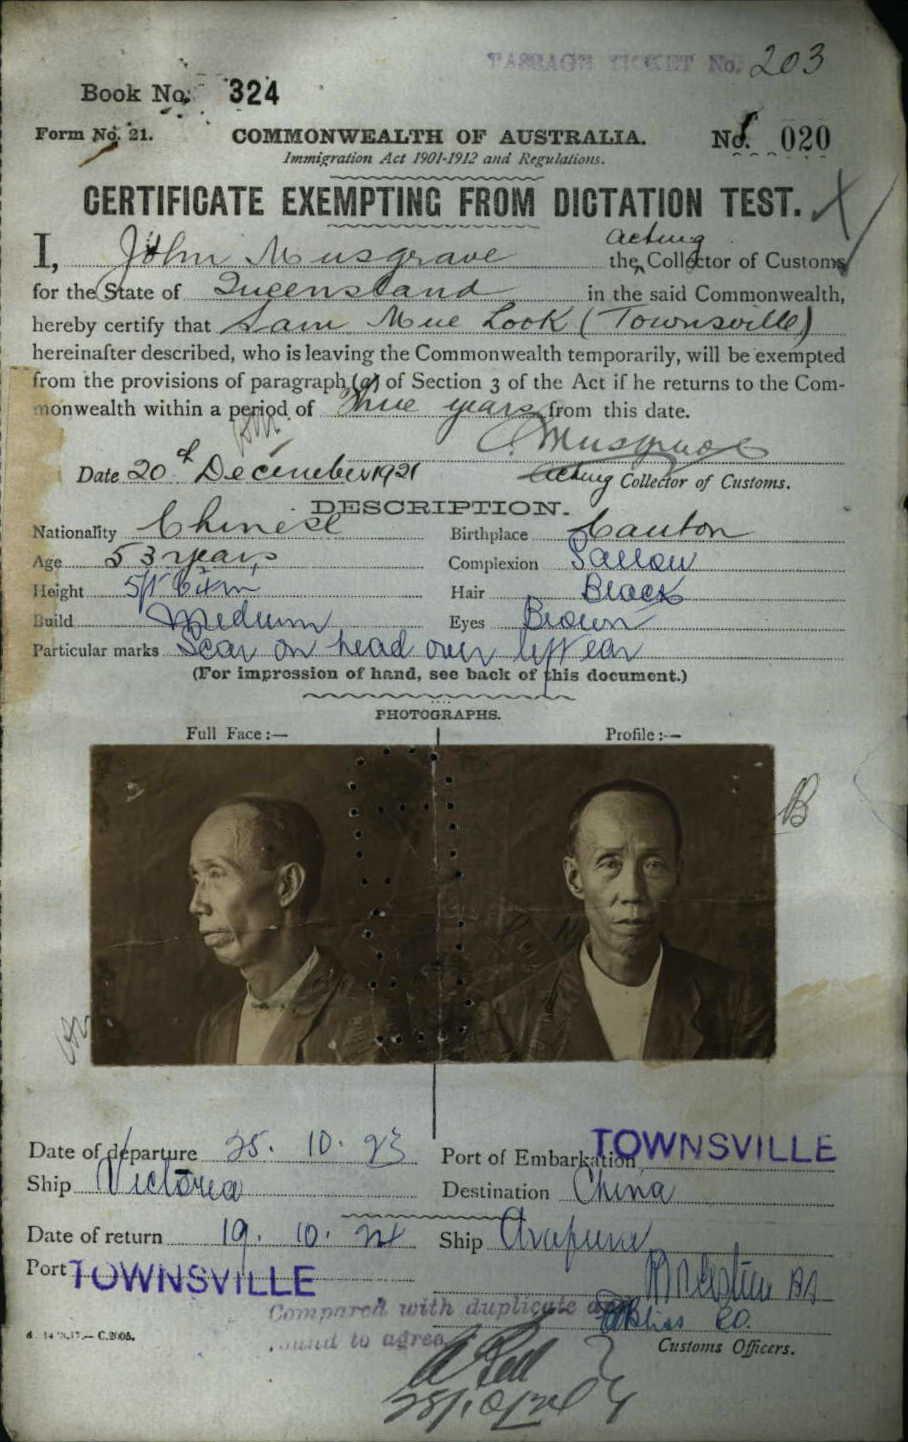 PASSAGE TICKET No. 203
Book No. 324
Form No. 21. COMMONWEALTH OF AUSTRALIA. No. 020
Immigration Act 1901-1912 and Regulations.
CERTIFICATE EXEMPTING FROM DICTATION TEST.
acting
I, John Musgrave the Collector of Customs
for the State of Queensland in the said Commonwealth,
hereby certify that Sam Mue Look (Townsville)
hereinafter described, who is leaving the Commonwealth temporarily, will be exempted
from the provisions of paragraph (a) of Section 3 of the Act if he returns to the Com-
monwealth within a period of Three years from this date.
Musgrave
Date 20th December 1921 Acting Collector of Customs.
DESCRIPTION.
Nationality Chinese Birthplace Canton
Age 53 years Complexion Sallow
Height Hair Black
Build Medium Eyes Brown
Particular marks Scar on head over left ear
(For impression of hand, see back of this document.)
PHOTOGRAPHS.
Full Face:— Profile:—
B
Date of departure 25. 10. 23 Port of Embarkation TOWNSVILLE
Ship Victoria Destination China
Date of return 19. 10. 24 Ship Arafura
Port TOWNSVILLE
Compared with duplicate and
found to agree
Customs Officers.
C.2005.
28/10/24